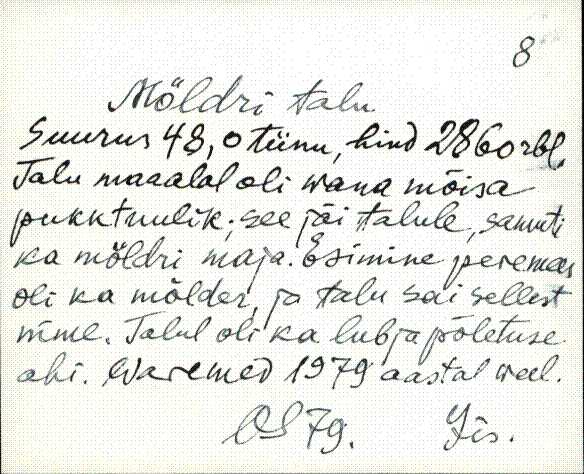 8
Möldri talu
Suurus 48,0 tiinu, hind 2860 rbl.
Talu maaalal oli wana mõisa
pukktuulik, see jäi talule, samuti
ka möldri maja. Esimine peremees
oli ka mölder, ja talu sai sellest
nime. Talul oli ka lubja põletuse
ahi. Waremed 1979 aastal weel.
79.